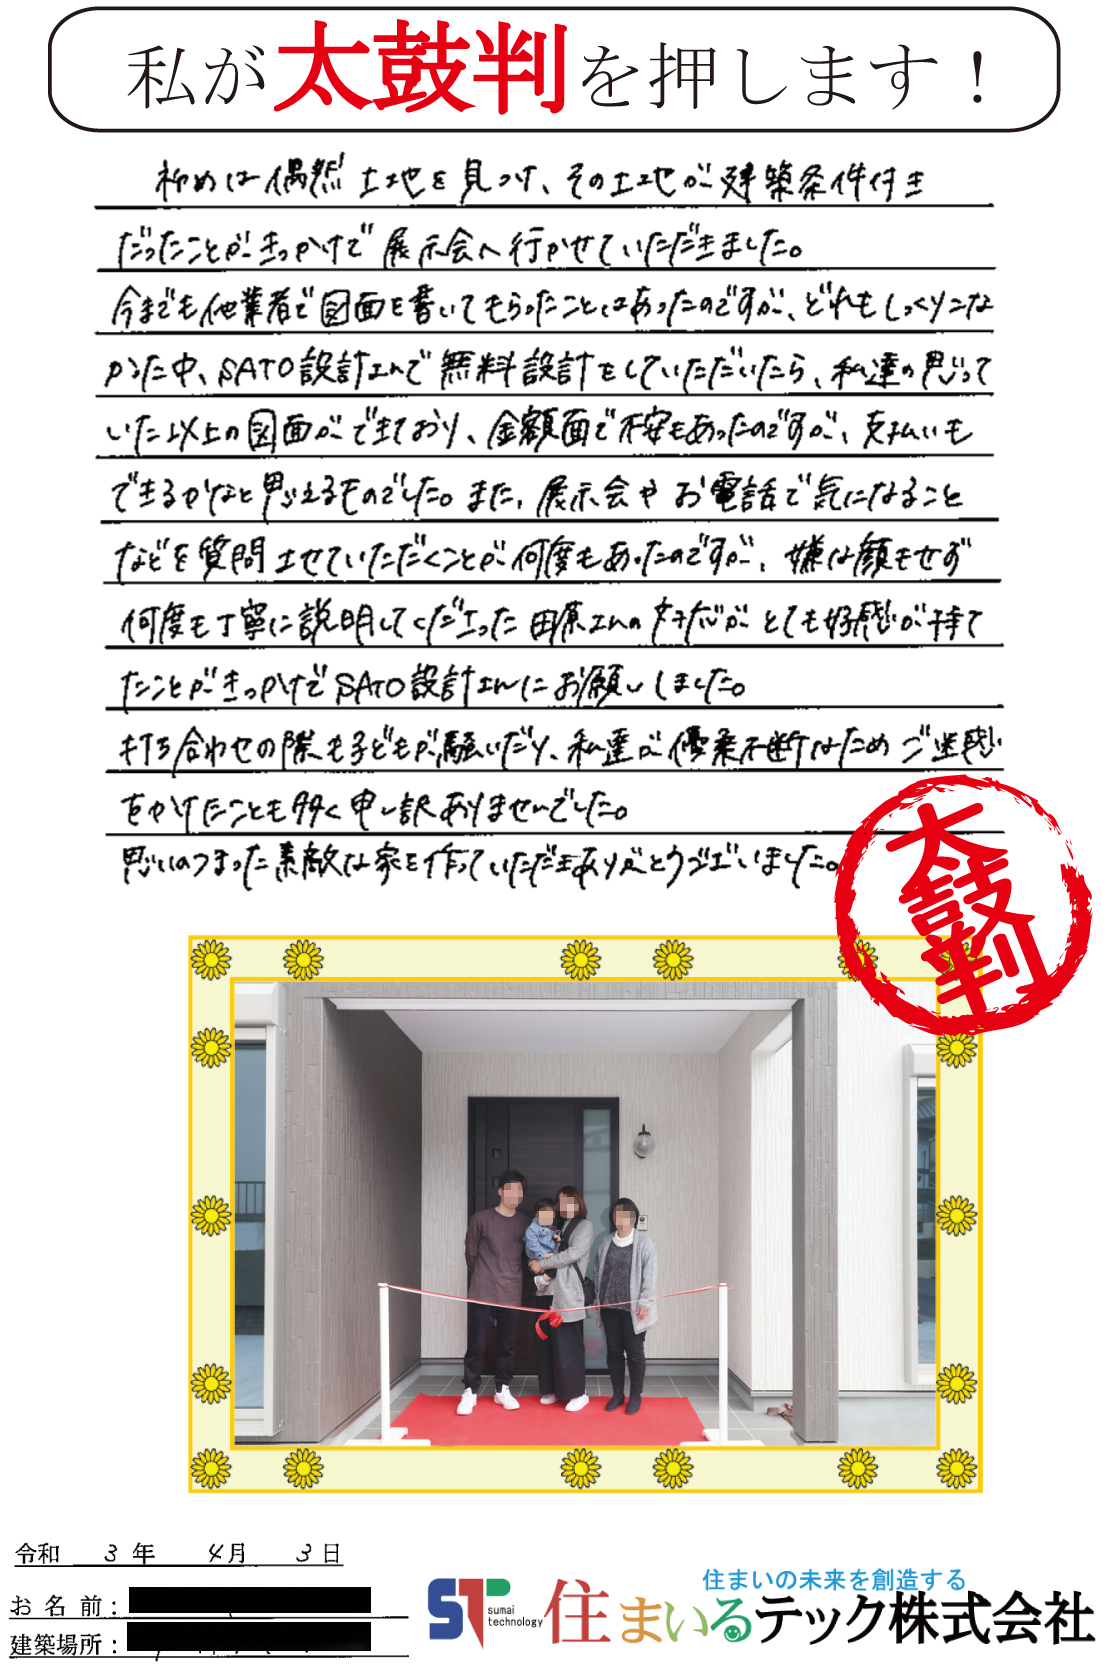 私が太鼓判を押します！
初めは偶然土地を見つけ、その土地が建築条件付き
だったことがきっかけで展示会へ行かせていただきました。
今までも他業者で図面を書いてもらったことはあったのですが、どれもしっくりこな
かった中、SATO設計さんで無料設計をしていただいたら、私達の思って
いた以上の図面ができており、金額面で不安もあったのですが、支払いも
できるかなと思えるものでした。また、展示会やお電話で気になること
などを質問させていただくことが何度もあったのですが、嫌な顔をせず
何度も丁寧に説明してくださった田原さんの対応がとても好感が持て
たことがきっかけでSATO設計さんにお願いしました。
打ち合わせの際も子どもが騒いだり、私達が優柔不断なためご迷惑
をかけたことも多く申し訳ありませんでした。
思いのつまった素敵な家を作っていただきありがとうございました。
太鼓判
令和 3年 4月 3日
お名前：
建築場所：
住まいの未来を創造する
ST sumai technology 住まいるテック株式会社